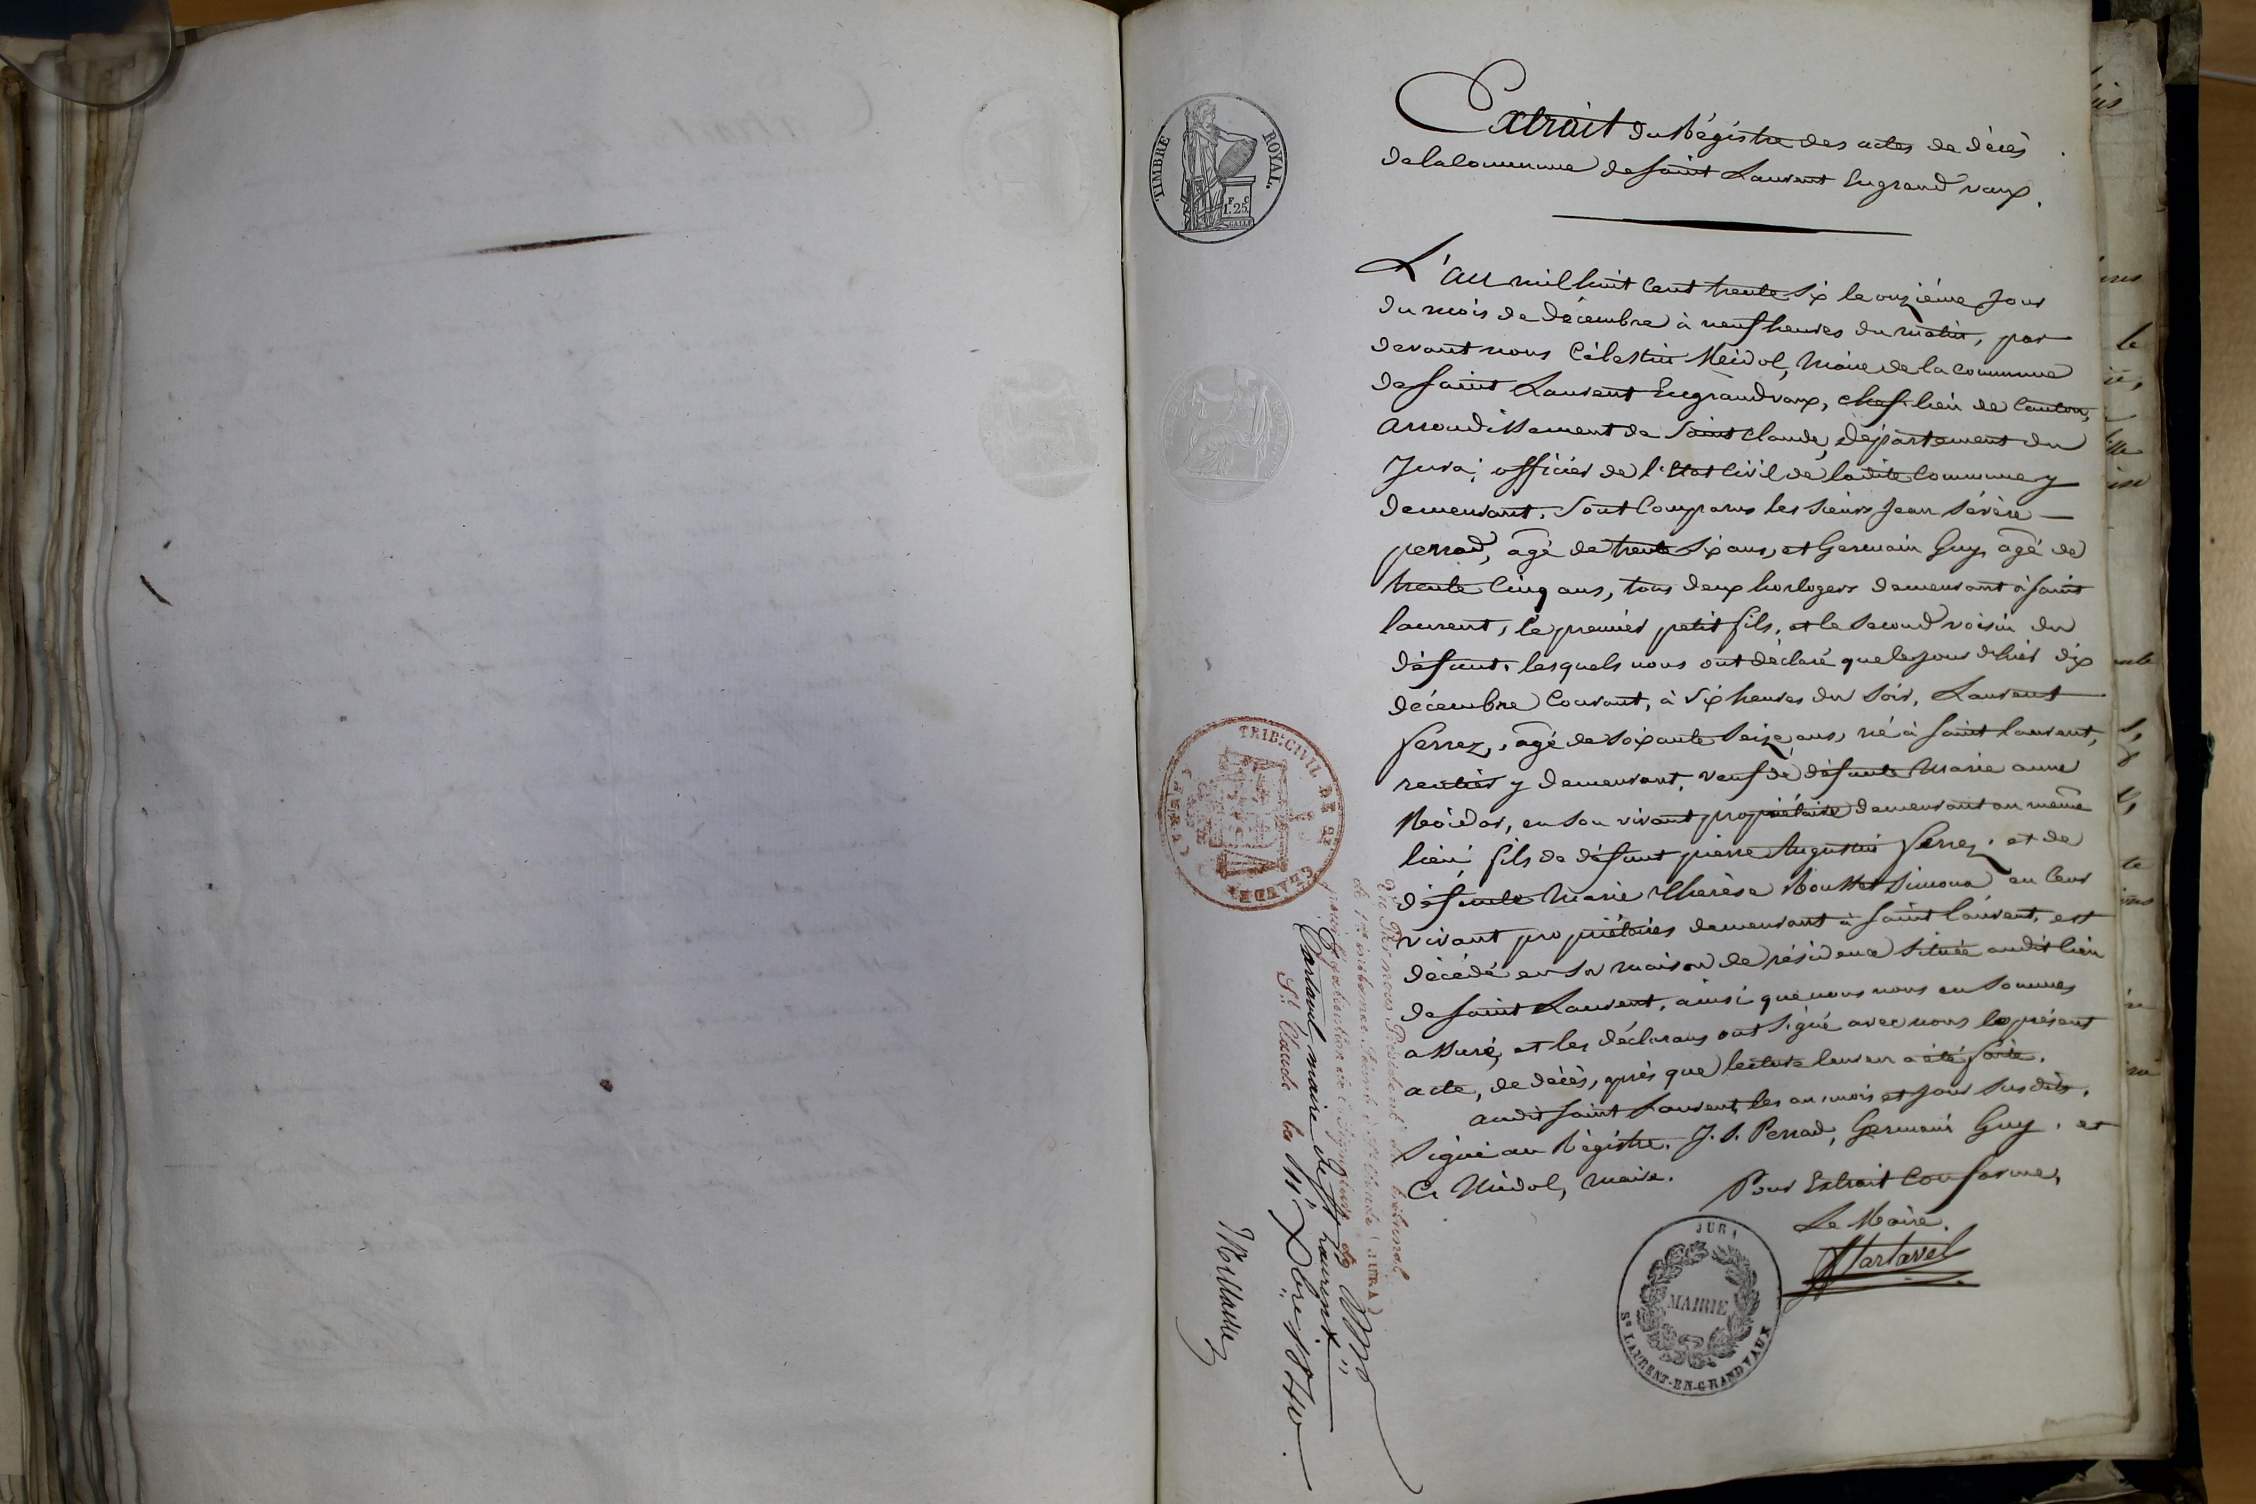 TIMBRE ROYAL.
F C
1.25
Extrait du Régistre des actes de décès
de la Commune de Saint Laurent Engrand vaux.
L'an mil huit cent trente six le onzième jour
du mois de décembre à neuf heures du matin, par
devant nous Célestin Meidol, Maire de la commune
de Saint Laurent Engrandvaux, chef lieu de Canton,
arrondissement de Saint Claude, département du
Jura, officier de l'Etat Civil de ladite Commune y
demeurant, sont comparus les sieurs Jean Sévère
perrad, âgé de trente six ans, et Germain Guy, âgé de
trente cinq ans, tous deux horlogers demeurant à Saint
laurent, le premier petit fils, et le second voisin du
défunt, lesquels nous ont déclaré que le jour d'hier dix
décembre courant, à six heures du soir, Laurent
ferrez, âgé de soixante seize ans, né à Saint laurent,
rentier y demeurant, veuf de défunte Marie anne
en son vivant propriétaire demeurant au même
lieu, fils de défunt pierre Augustin ferrez, et de
défunte Marie Thérèse Rousset Simona en leur
vivant propriétaires demeurant à Saint laurent, est
décédé en sa maison de résidence située audit lieu
de Saint Laurent, ainsi que nous nous en sommes
assuré, et les déclarans ont signé avec nous le présent
acte, de décès, après que lecture leur en a été faite.
audit Saint Laurent, les an, mois et jour susdits,
Signé au Régistre. J. S. Perrad, Germain Guy, et
C. Meidol, maire.
Pour Extrait Conforme,
Le Maire.
Martavel
JURA
MAIRIE
St LAURENT-EN-GRANDVAUX
TRIB. CIVIL DE St CLAUDE (JURA)
Vu Par nous Président du tribunal
de 1re instance séant à St Claude (JURA)
pour légalisation de la signature de M
maire de St Laurent
St Claude le 11 1840.